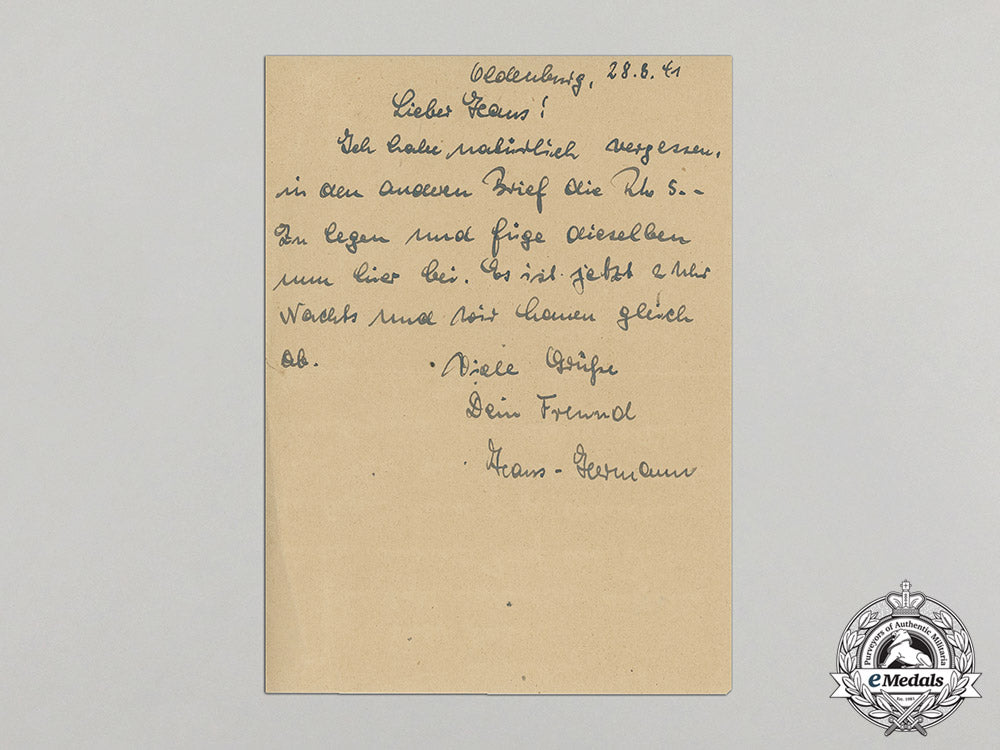 Oldenburg, 28.8.41
Lieber Hans!
Ich habe natürlich vergessen,
in den anderen Brief die RM 5.-
zu legen und füge dieselben
nun hier bei. Es ist jetzt 2 Uhr
Nachts und wir hauen gleich
ab.
Viele Grüße
Dein Freund
Hans-Hermann
Purveyors of Authentic Militaria
eMedals
Est. 1985